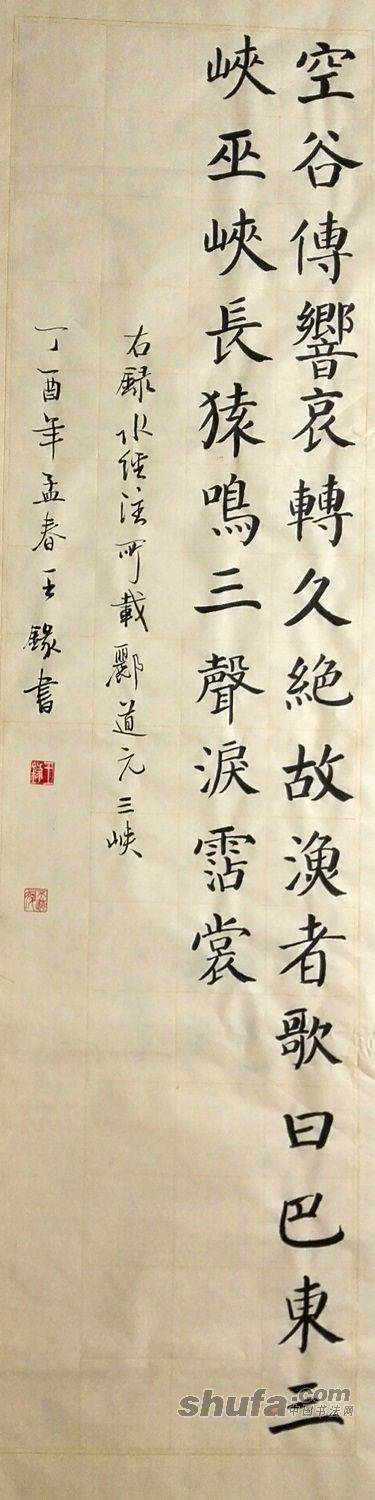 空谷傳響哀轉久絶故漁者歌曰巴東三
峽巫峽長猿鳴三聲淚霑裳
右録水经注所載酈道元三峡
丁酉年孟春王録書
shufa.com
中国书法网